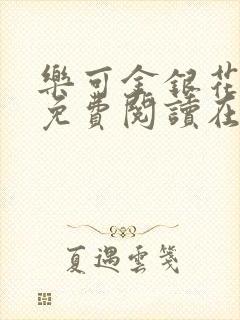 樂可金銀花
免費閱讀在
夏遇雲箋